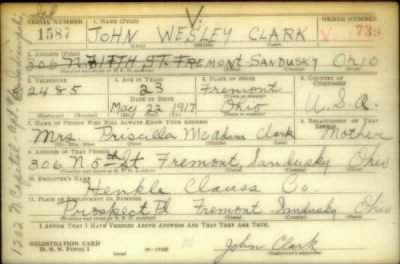 SERIAL NUMBER 1. NAME (Print) ORDER NUMBER
1587 JOHN WESLEY CLARK V
(First) (Middle) (Last)
2. ADDRESS (Print)
306 N. FIFTH ST. FREMONT SANDUSKY OHIO
3. TELEPHONE 4. AGE IN YEARS 5. PLACE OF BIRTH 6. COUNTRY OF CITIZENSHIP
2485 23 Fremont
DATE OF BIRTH
May 22, 1917 Ohio U.S.A.
7. NAME OF PERSON WHO WILL ALWAYS KNOW YOUR ADDRESS 8. RELATIONSHIP OF THAT PERSON
Mrs. Priscilla McAdim Clark Mother
9. ADDRESS OF THAT PERSON
306 N. 5th St Fremont, Sandusky Ohio
10. EMPLOYER'S NAME
Henkle Clauss Co.
11. PLACE OF EMPLOYMENT OR BUSINESS
Prospect Rd Fremont Sandusky Ohio
I AFFIRM THAT I HAVE VERIFIED ABOVE ANSWERS AND THAT THEY ARE TRUE.
REGISTRATION CARD
D. S. S. Form 1 John Clark